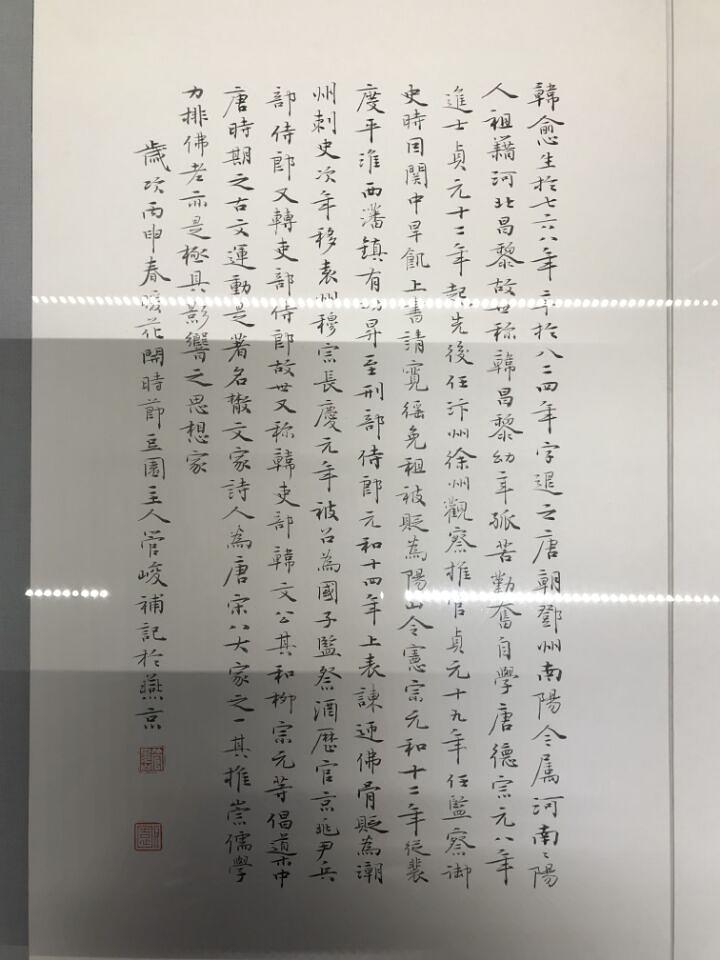 韓愈生於七六八年卒於八二四年字退之唐朝鄧州南陽今属河南南陽
人祖籍河北昌黎故世称韓昌黎幼年孤苦勤奮自學唐德宗元八年
進士貞元十二年起先後任汴州徐州觀察推官貞元十九年任監察御
史時因関中旱飢上書請寛徭免租被貶為陽山令憲宗元和十二年從裴
度平淮西潘鎮有功昇至刑部侍郎元和十四年上表諫迎佛骨貶為潮
州刺史次年移袁州穆宗長慶元年被召為國子監祭酒歷官京兆尹兵
部侍郎又轉吏部侍郎故世又称韓吏部韓文公其和柳宗元等倡道中
唐時期之古文運動是著名散文家詩人為唐宋八大家之一其推崇儒學
力排佛老亦是極具影響之思想家
歲次丙申春暖花開時節豆園主人管峻補記於燕京